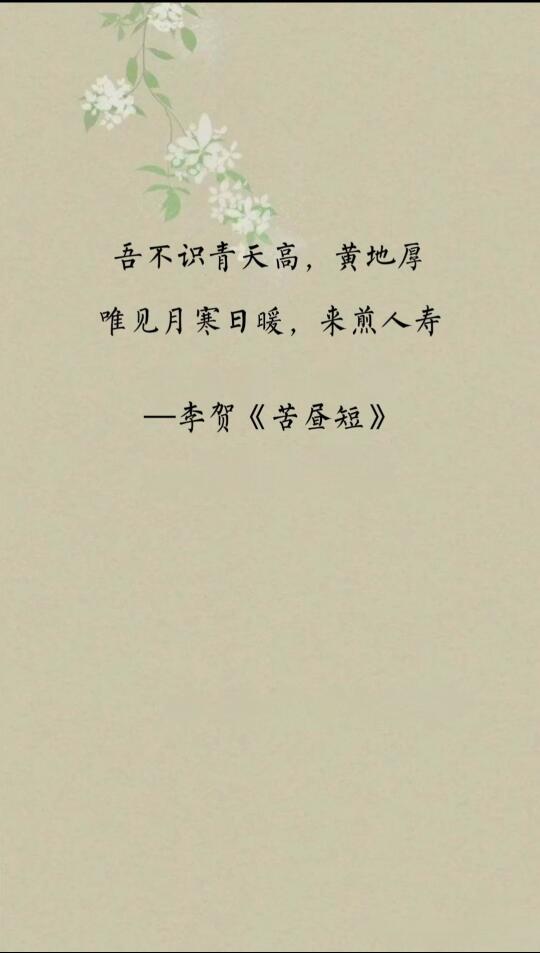 吾不识青天高，黄地厚
唯见月寒日暖，来煎人寿
—李贺《苦昼短》